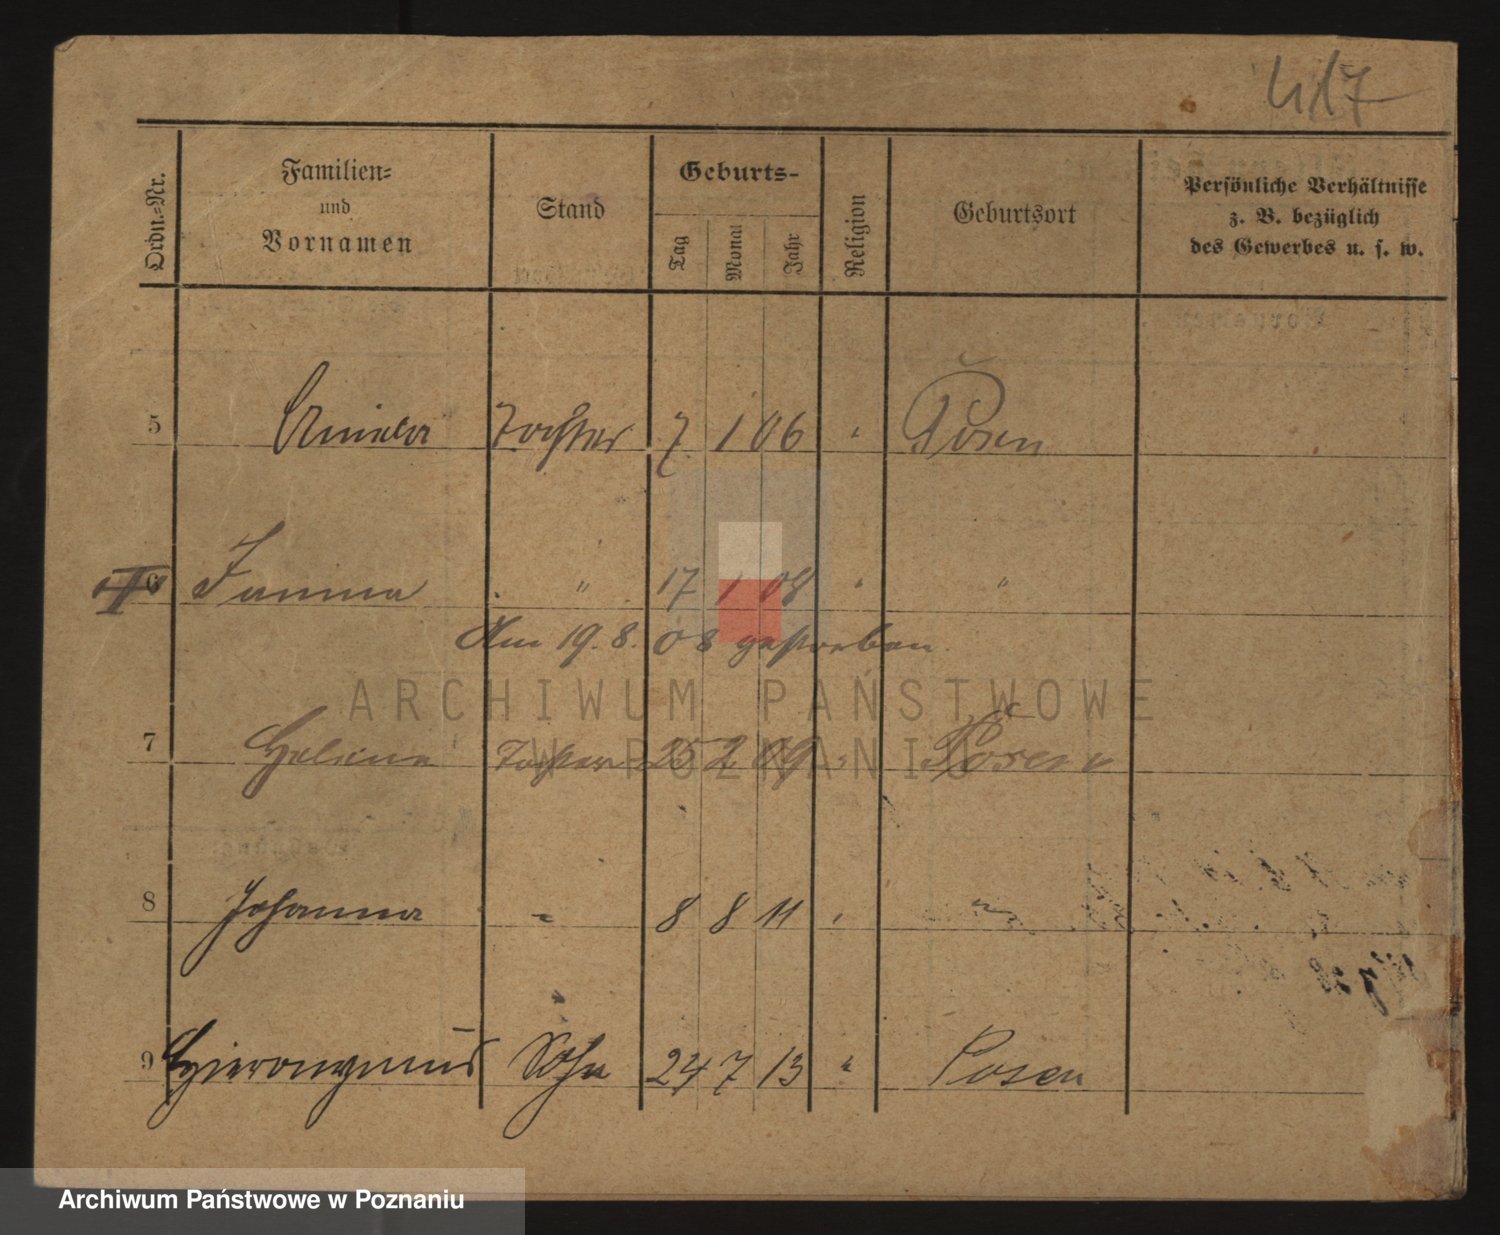 417
Ordn.-Nr. Familien- und Vornamen Stand Geburts- Tag Monat Jahr Religion Geburtsort Persönliche Verhältnisse z. B. bezüglich des Gewerbes u. s. w.
5 Aniela Tochter 7. 1 06 " Posen
6 Janina " 17 1 08 " "
Am 19. 8. 08 gestorben.
7 Helena Tochter 25 2 09 " Posen
8 Johanna " 8 8 11 " "
9 Hieronymus Sohn 24 7 13 " Posen
ARCHIWUM PAŃSTWOWE
W POZNANIU
Archiwum Państwowe w Poznaniu